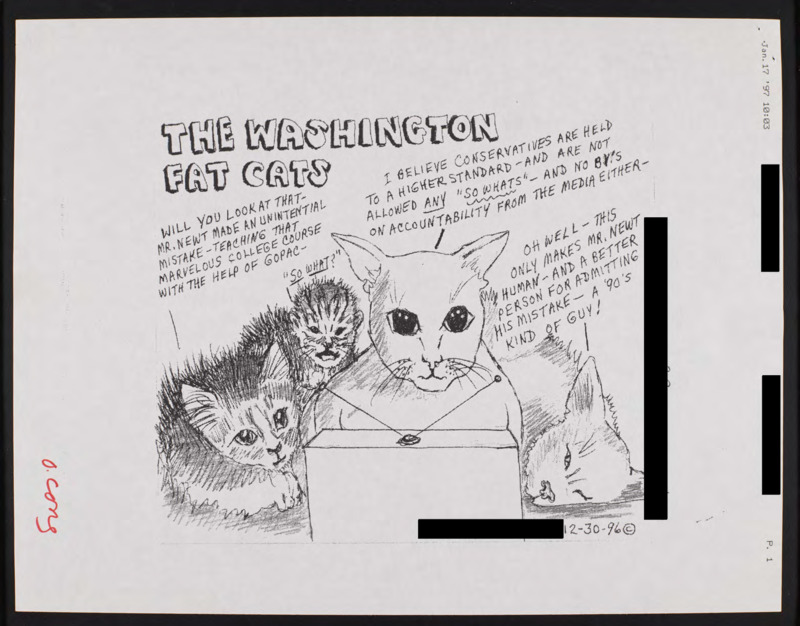 Jan. 17 '97 10:03
THE WASHINGTON
FAT CATS
WILL YOU LOOK AT THAT-
MR. NEWT MADE AN UNINTENTIAL
MISTAKE - TEACHING THAT
MARVELOUS COLLEGE COURSE
WITH THE HELP OF GOPAC-
"SO WHAT?"
I BELIEVE CONSERVATIVES ARE HELD
TO A HIGHER STANDARD - AND ARE NOT
ALLOWED ANY "SO WHATS" - AND NO BY'S
ON ACCOUNTABILITY FROM THE MEDIA EITHER-
OH WELL - THIS
ONLY MAKES MR. NEWT
HUMAN - AND A BETTER
PERSON FOR ADMITTING
HIS MISTAKE - A '90'S
KIND OF GUY!
12-30-96 ©
P. 1